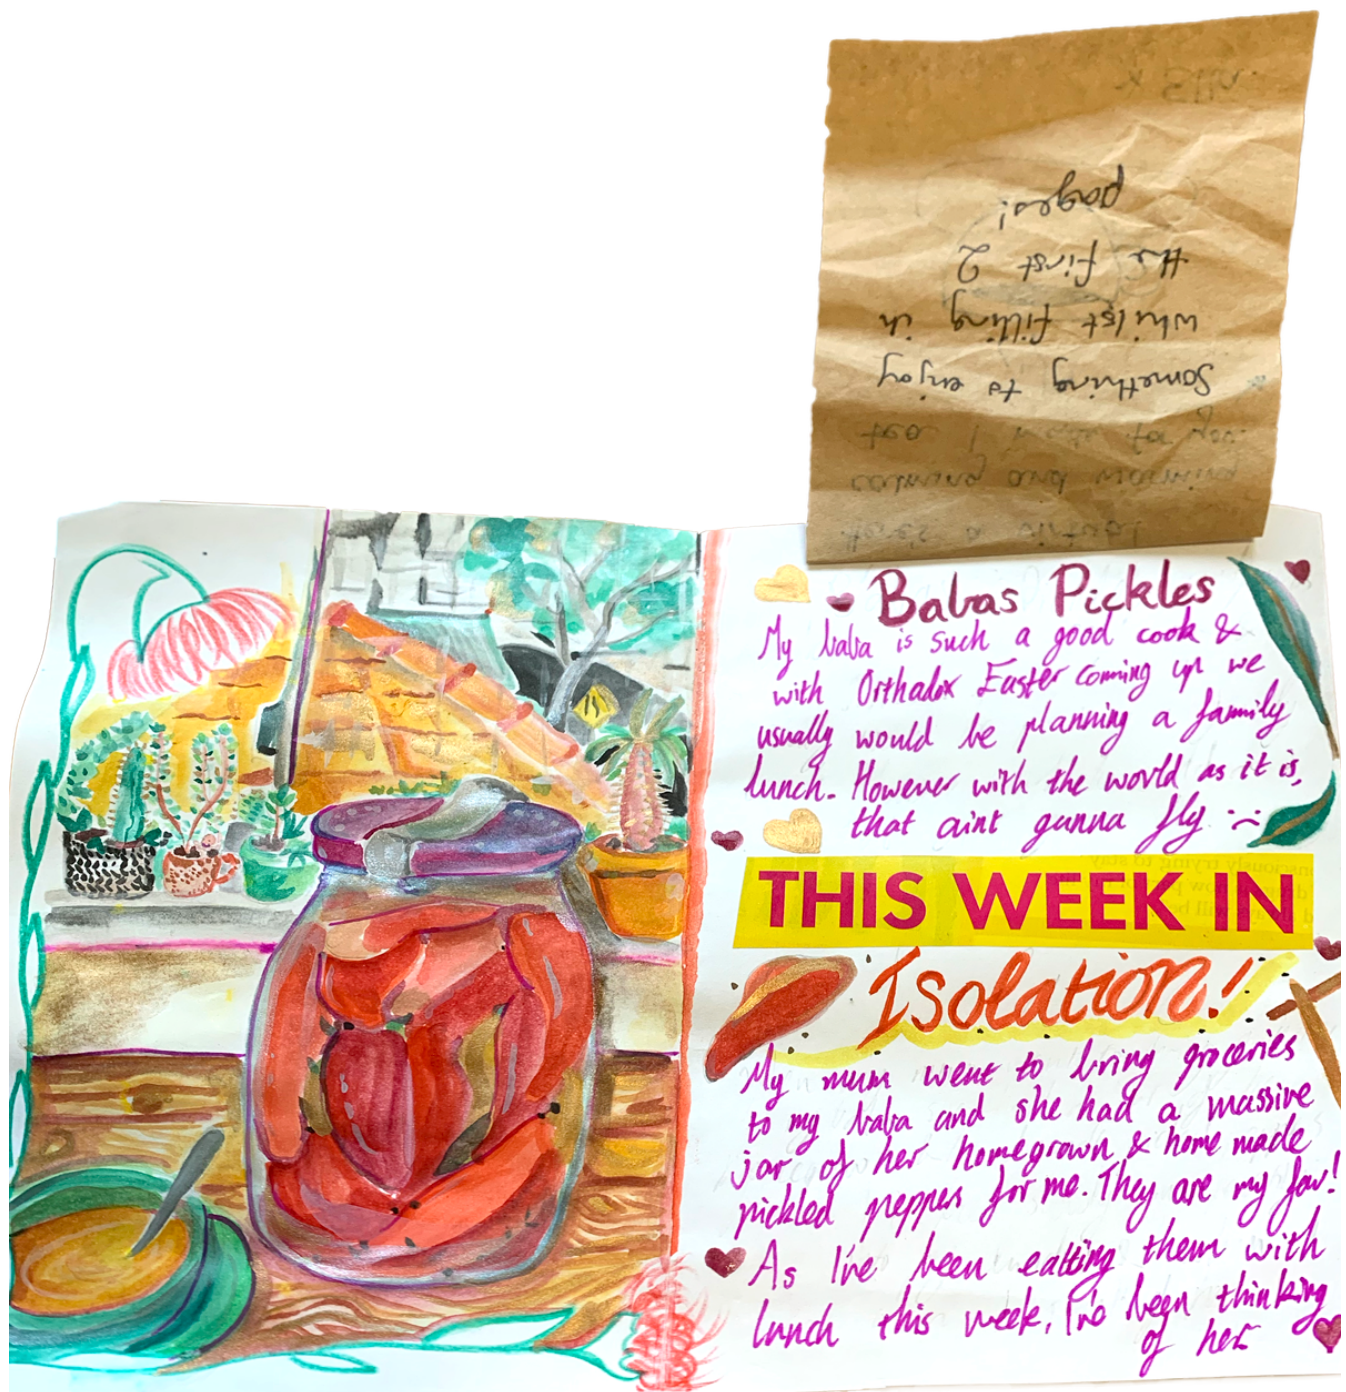 Something to enjoy
whilst filling in
the first 2
pages!
Babas Pickles
My baba is such a good cook &
with Orthadox Easter coming up we
usually would be planning a family
lunch. However with the world as it is,
that aint gunna fly :(
THIS WEEK IN
Isolation!
My mum went to bring groceries
to my baba and she had a massive
jar of her homegrown & home made
pickled peppers for me. They are my fav!
As I've been eatting them with
lunch this week, I've been thinking
of her